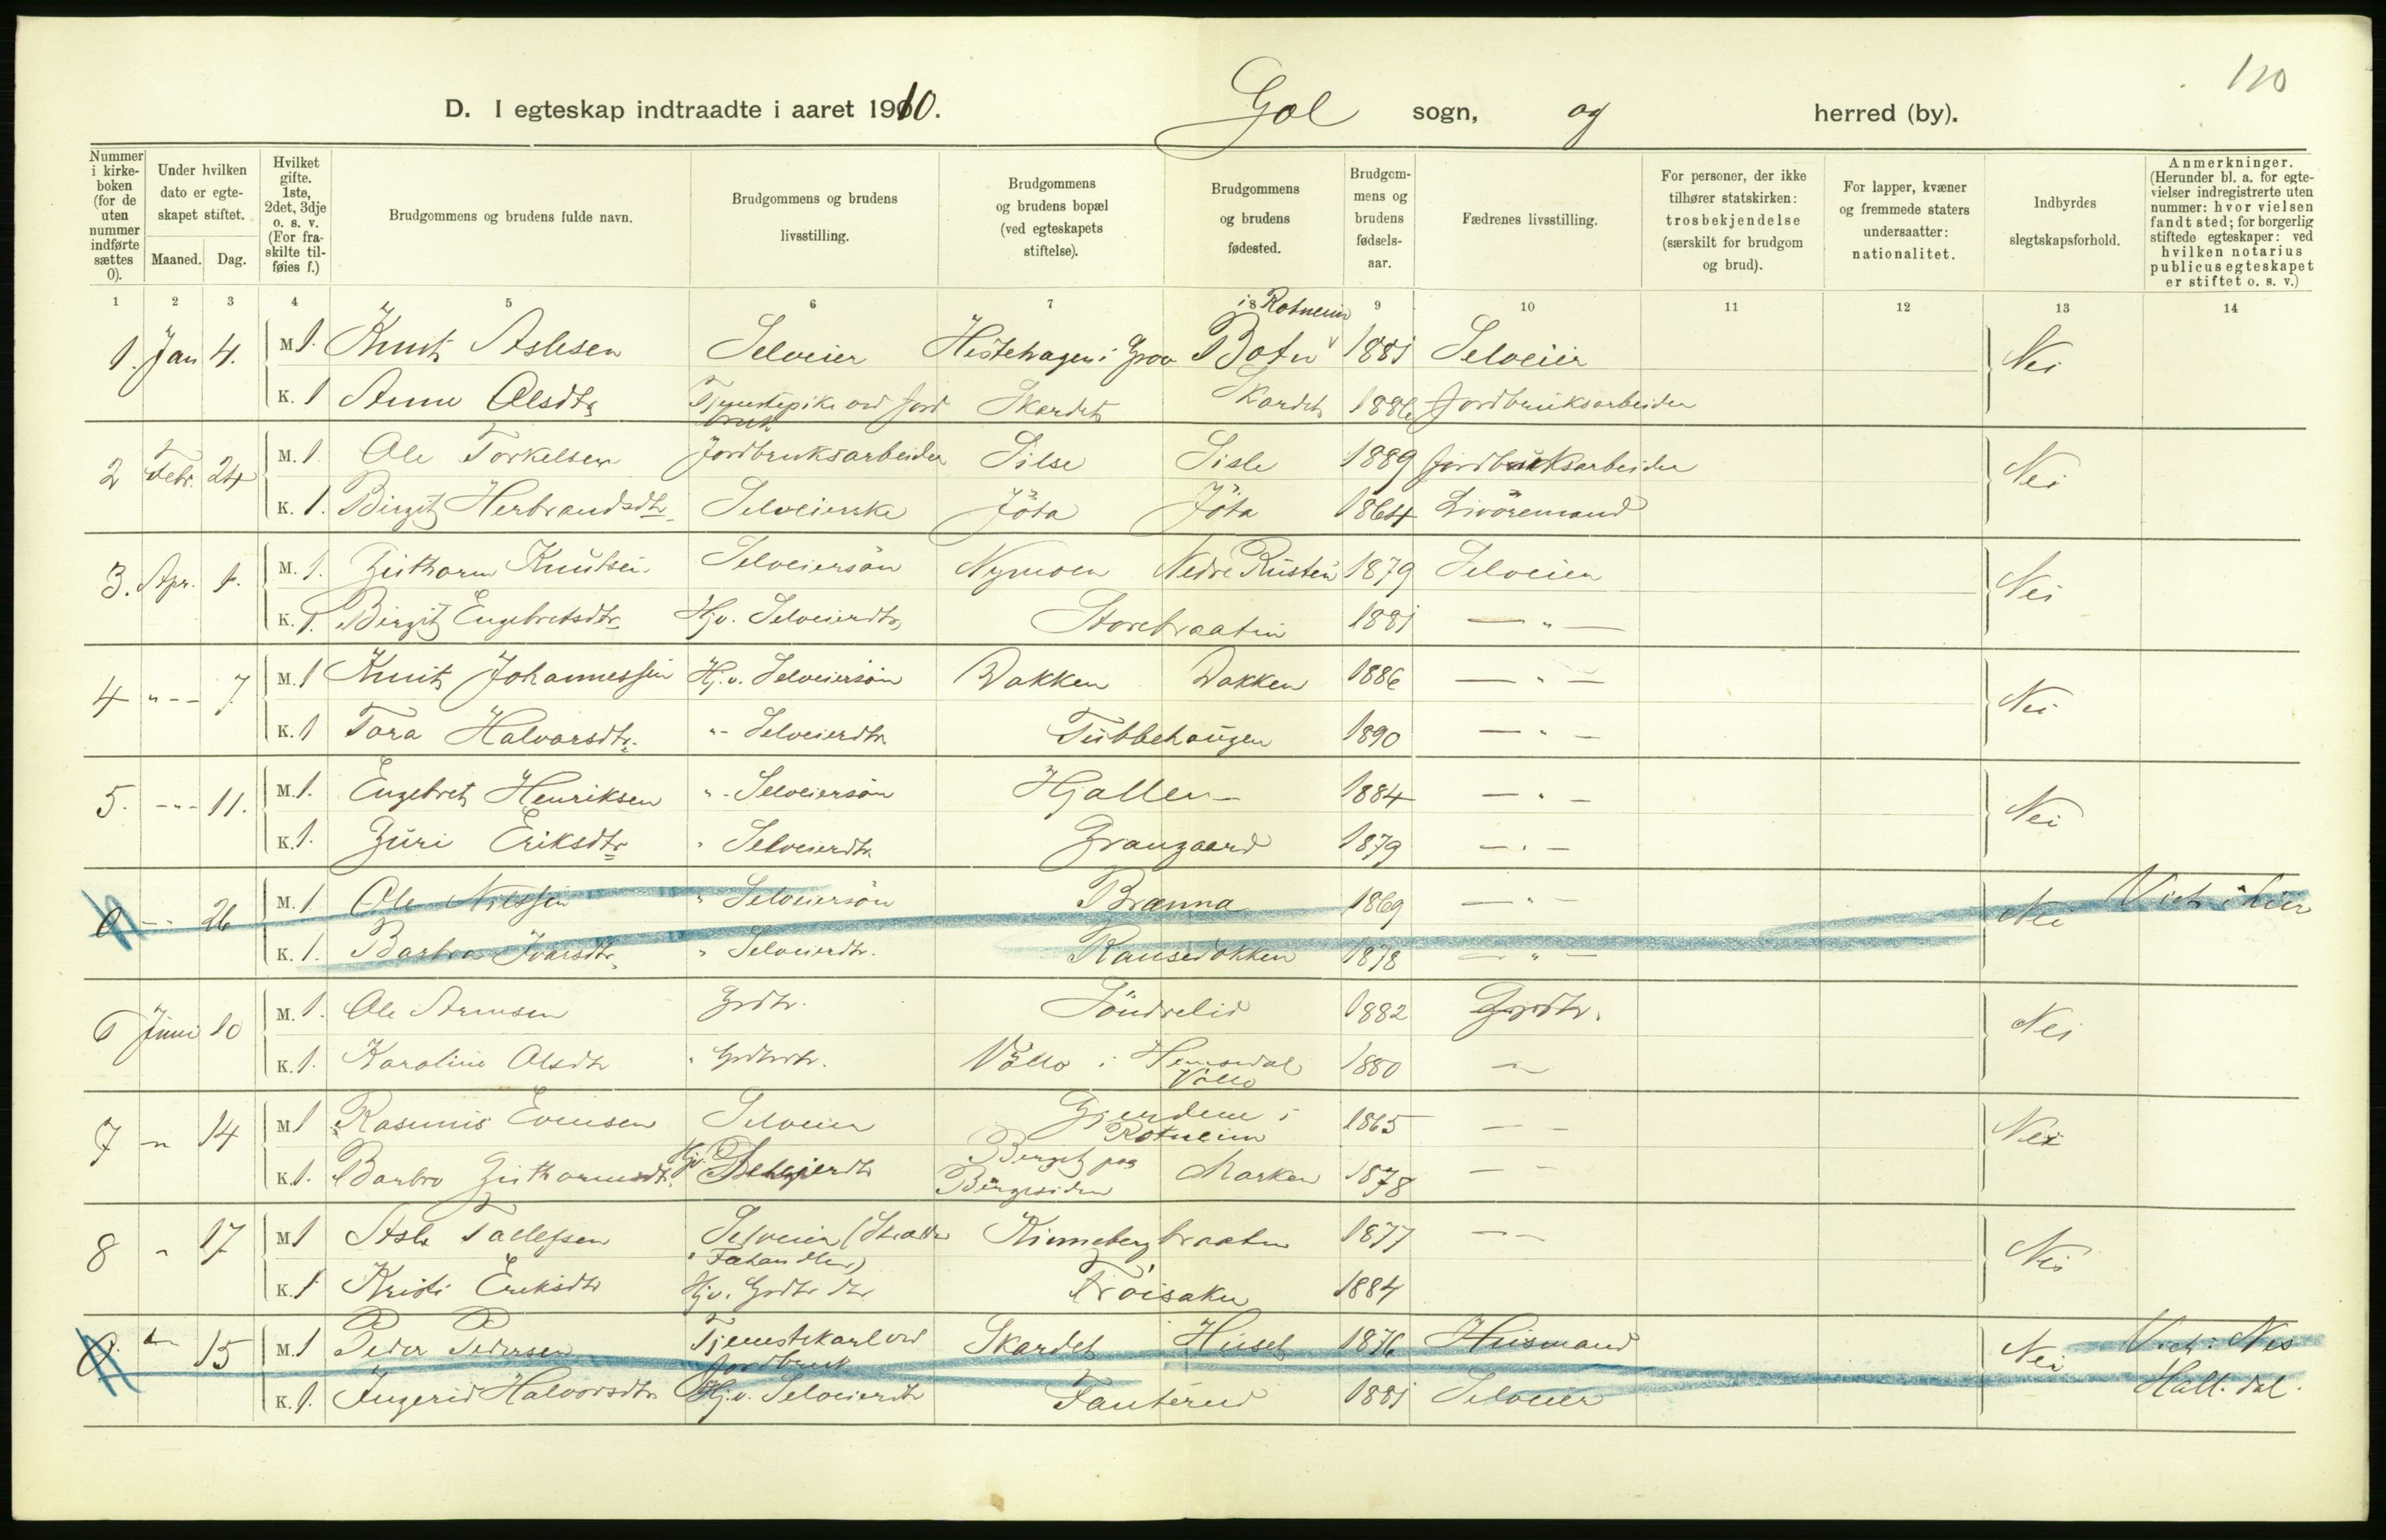 110
D. I egteskap indtraadte i aaret 1910. Gol sogn, og herred (by).
Nummer i kirkeboken (for de uten nummer indførte sættes 0).
Under hvilken dato er egteskapet stiftet.
Maaned. Dag.
Hvilket gifte. 1ste, 2det, 3dje o. s. v. (For fraskilte tilføies f.)
Brudgommens og brudens fulde navn.
Brudgommens og brudens livsstilling.
Brudgommens og brudens bopæl (ved egteskapets stiftelse).
Brudgommens og brudens fødested.
Brudgommens og brudens fødselsaar.
Fædrenes livsstilling.
For personer, der ikke tilhører statskirken: trosbekjendelse (særskilt for brudgom og brud).
For lapper, kvæner og fremmede staters undersaatter: nationalitet.
Indbyrdes slegtskapsforhold.
Anmerkninger. (Herunder bl. a. for egtevielser indregistrerte uten nummer: hvor vielsen fandt sted; for borgerlig stiftede egteskaper: ved hvilken notarius publicus egteskapet er stiftet o. s. v.)
1 2 3 4 5 6 7 8 9 10 11 12 13 14
i Rotneim
1. Jan 4. M 1. Knut Aslesen Selveier Hestehagen i Groo Botn 1881 Selveier Nei
K. 1 Anne Olsdtr Tjenestepike ved jordbruk Skardet Skardet 1886 Jordbruksarbeider
2 Febr. 24 M. 1. Ole Torkelsen Jordbruksarbeider Silse Sisle 1889 Jordbruksarbeider Nei
K. 1. Birgit Herbrandsdtr Selveierske Jöta Jöta 1864 Livöremand
3. Apr. 1. M. 1. Guthorm Knutsen Selveiersön Nymoen Nedre Rusten 1879 Selveier Nei
K. 1. Birgit Engebretsdtr Hjv. Selveierdtr Storebraaten 1881 — " —
4 " -- 7. M. 1 Knut Johannessen Hj.v. Selveiersön Dokken Dokken 1886 — " — Nei
K. 1 Tora Halvorsdtr. "- Selveierdtr Tubbehaugen 1890 — " —
5. -"- 11. M. 1. Engebret Henriksen "- Selveiersön Hjallen 1884 — " — Nei
K. 1. Guri Eriksdtr " Selveierdtr Grangaard 1879 — " —
0 -- 26 M. 1 Ole Nilssen " Selveiersön Brænna 1869 — " — Nei Viet i
K. 1. Barbro Ivarsdtr " Selveierdtr. 1878 — " —
6 Juni 10 M. 1. Ole Arnesen Grdbr. Söndrelid 1882 Grdbr. Nei
K. 1. Karoline Olsdtr " Grdbrdtr. Vollo i Hemsedal Vollo 1880 —
7 -"- 14 M 1 Rasmus Evensen Selveier Gjerdene i Rotneim 1865 — — Nei
K. 1. Barbro Guthormsdtr. Hjv. Selveierdtr Berget paa Bergesiden Marken 1878 — —
8 " 17 M 1 Asle Tollefsen Selveier (Skrædder Fæhandler) Kinnebergbraaten 1877 — — Nei
K. 1 Kristi Eriksdtr Hjv. Grdbr dtr Tröisaker 1884
0 " 15 M. 1 Peder Pedersen Tjenestekarl ved Jordbruk Skardet Huset 1876 Husmand Nei Viet i Nes Hall.dal.
K. 1. Ingerid Halvorsdtr Hj.v. Selveierdtr Fauterud 1881 Selveier